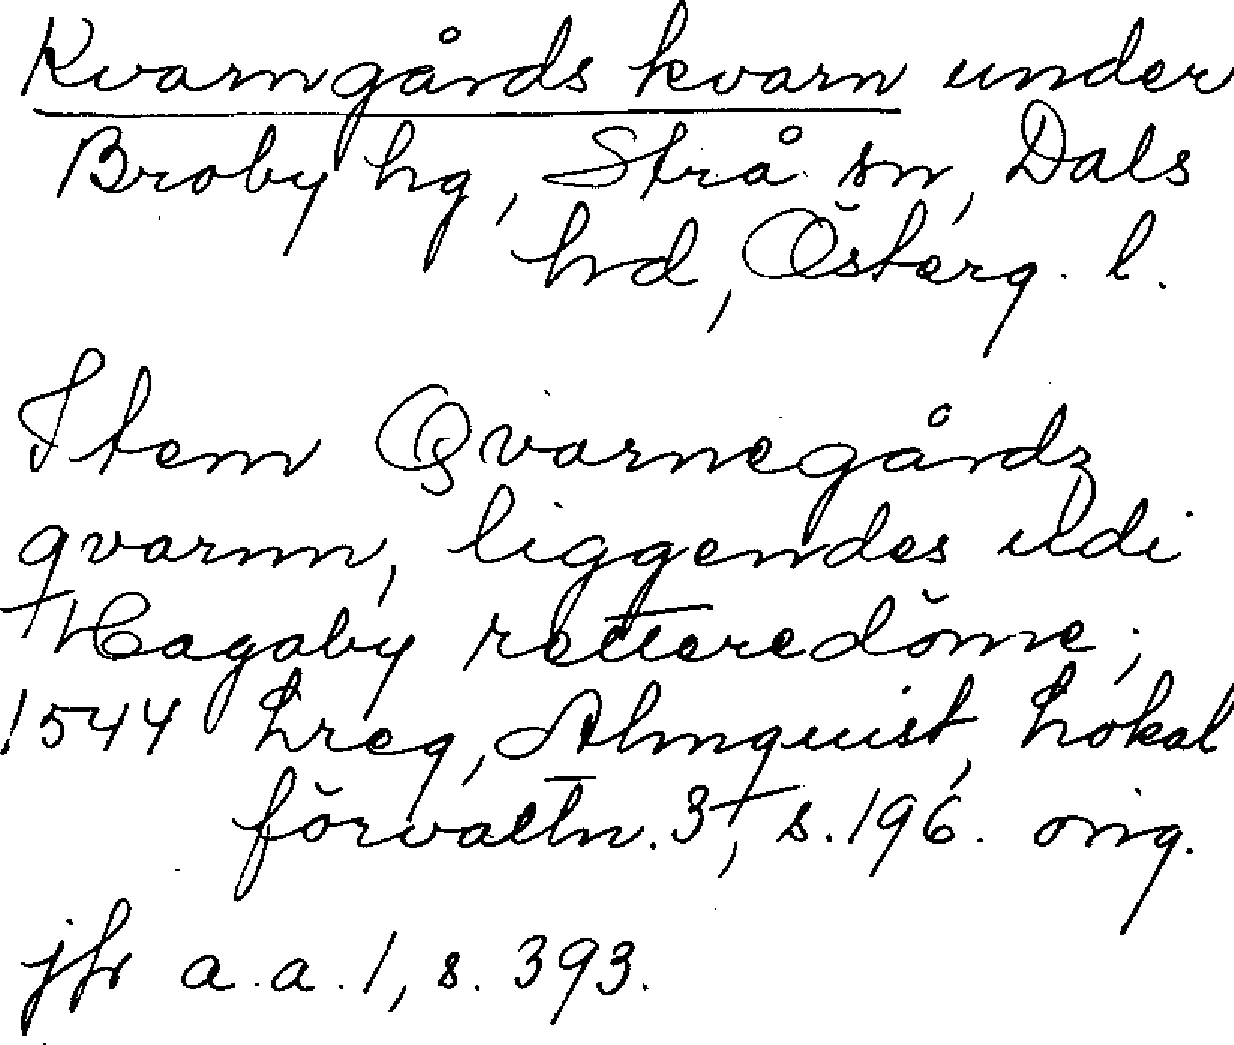 Kvarngårds kvarn under
Broby hg, Strå sn, Dals
hd, Österg. l.
Item Qvarnegårdz
qvarnn, liggendes udi
Hagaby retteredöme;
1544 Lreg, Almquist, Lokal
förvaltn. 3†, s. 196. orig.
jfr a.a. 1, s. 393.